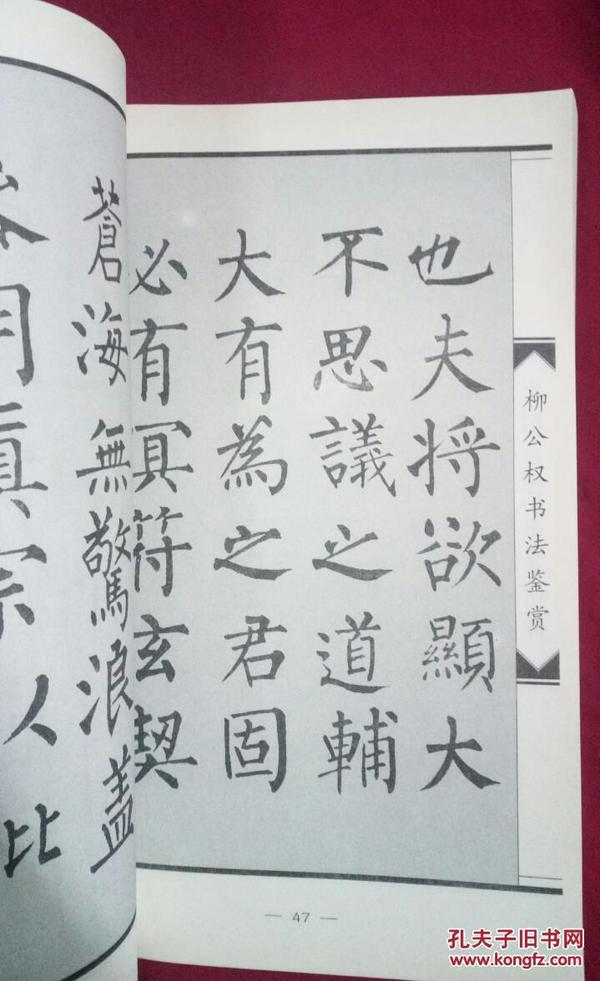 也夫将欲顯大
不思議之道輔
大有為之君固
必有冥符玄契
柳公权书法鉴赏
— 47 —
蒼海無驚浪蓋
用真宗人比
孔夫子旧书网
www.kongfz.com